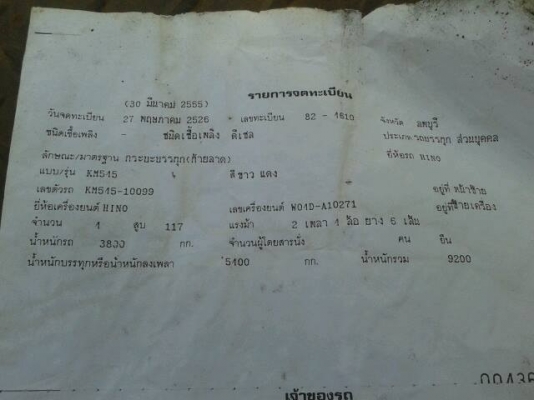 (30 มีนาคม 2555) รายการจดทะเบียน
วันจดทะเบียน 27 พฤษภาคม 2526 เลขทะเบียน 82 - 4610 จังหวัด ลพบุรี
ชนิดเชื้อเพลิง - ชนิดเชื้อเพลิง ดีเซล ประเภท รถบรรทุก ส่วนบุคคล
ลักษณะ/มาตรฐาน กระบะบรรทุก(ท้ายลาด) ยี่ห้อรถ HINO
แบบ/รุ่น KM545 สีขาว แดง
เลขตัวรถ KM545-10099 อยู่ที่ หน้าซ้าย
ยี่ห้อเครื่องยนต์ HINO เลขเครื่องยนต์ W04D-A10271 อยู่ที่ซ้ายเครื่อง
จำนวน 4 สูบ 117 แรงม้า 2 เพลา 4 ล้อ ยาง 6 เส้น
น้ำหนักรถ 3800 กก. จำนวนผู้โดยสารนั่ง คน ยืน
น้ำหนักบรรทุกหรือน้ำหนักลงเพลา 5400 กก. น้ำหนักรวม 9200
เจ้าของรถ